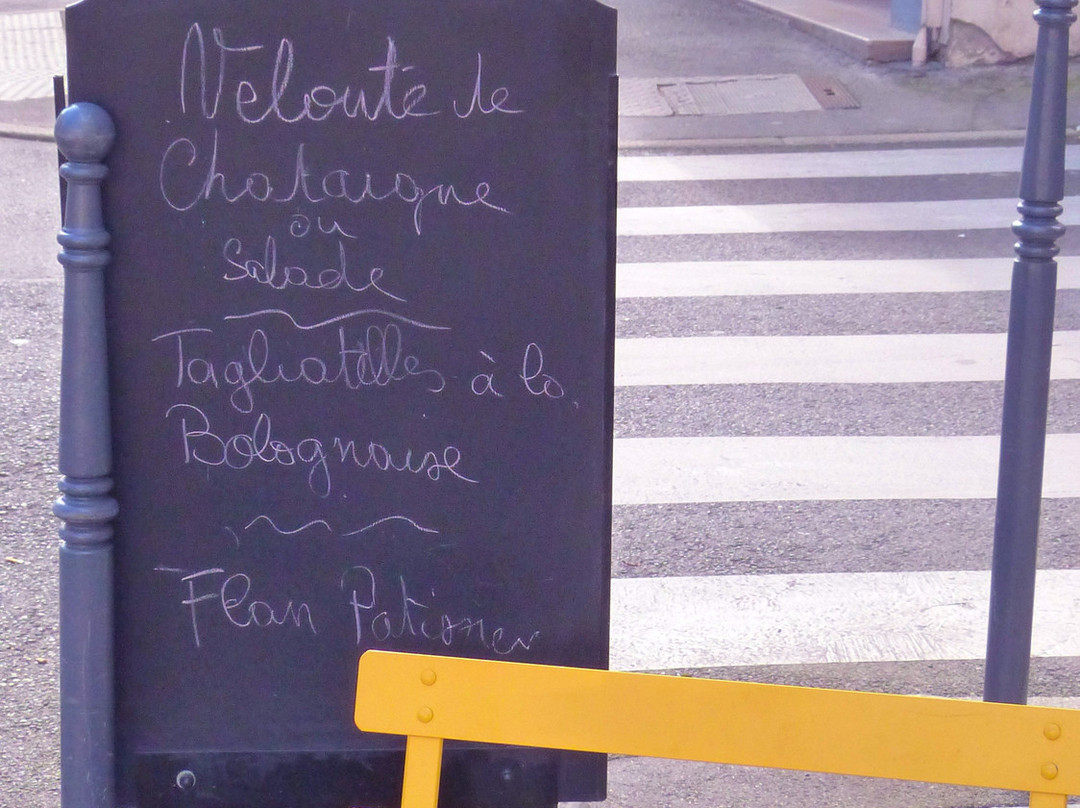 Velouté de
Chataigne
ou
Salade
Tagliatelles à la
Bolognaise
Flan Patissier